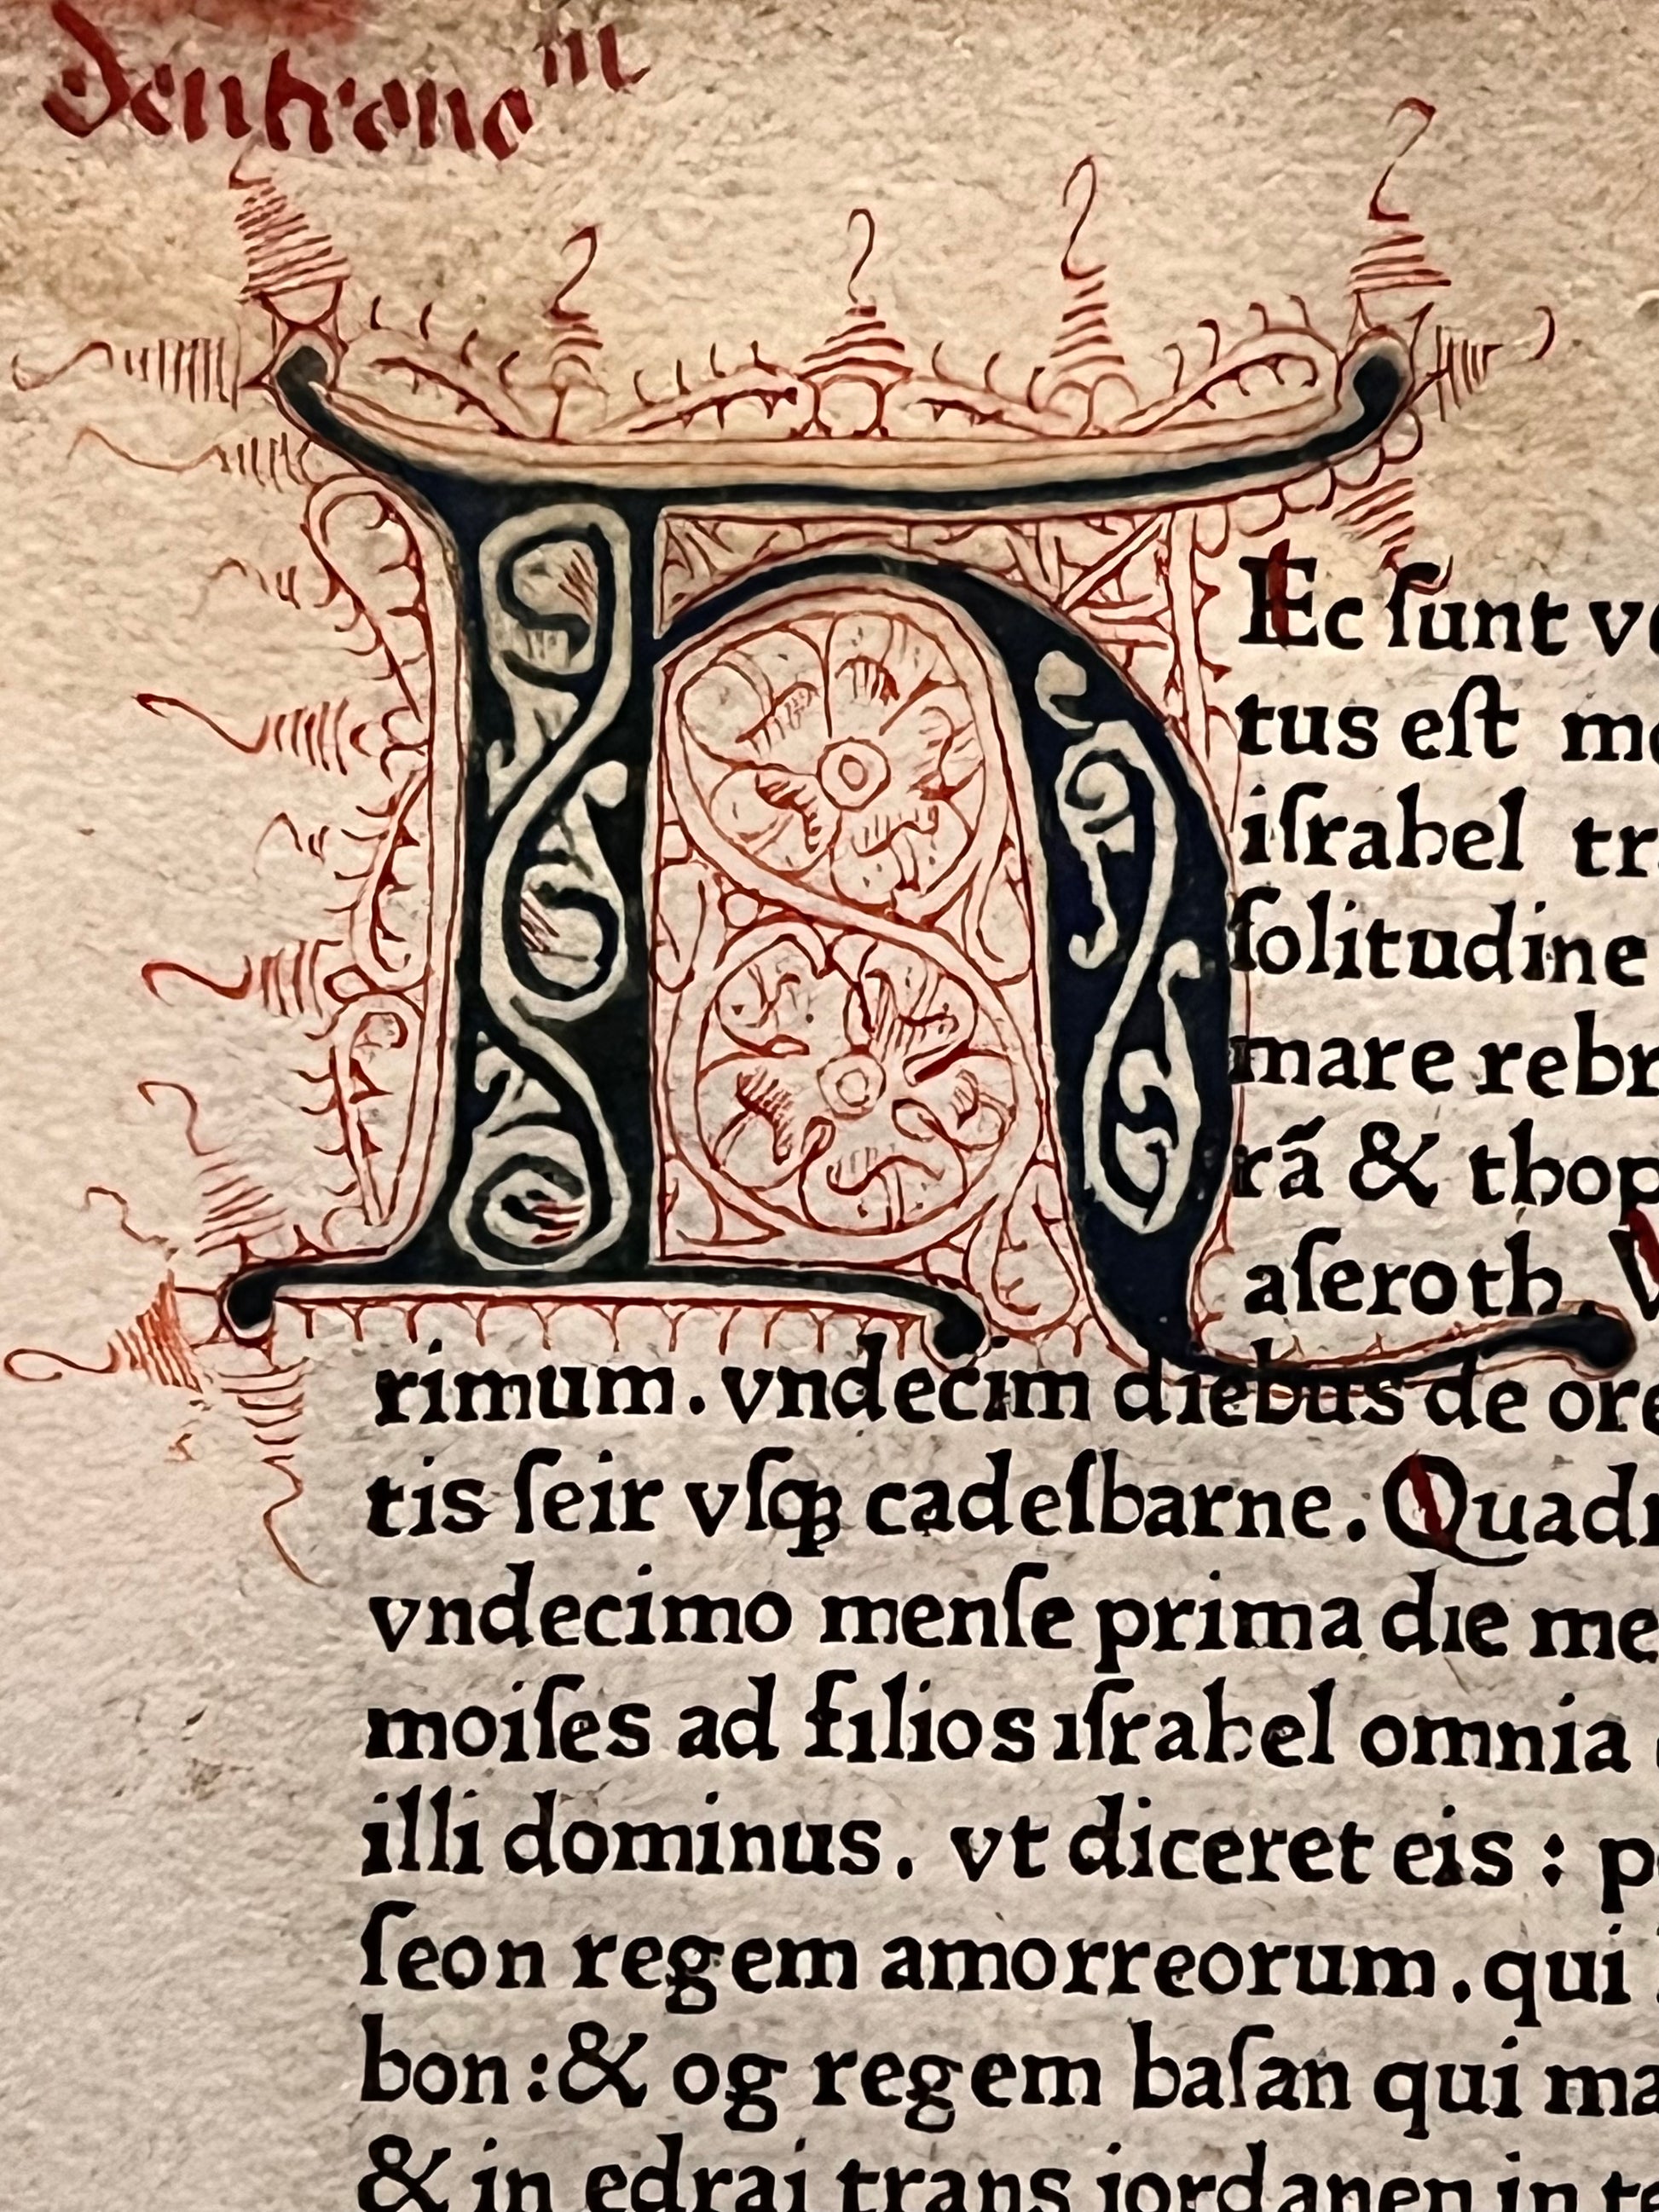 deutronoᵐ
HEc ſunt ve
tus eſt mo
iſrahel tra
ſolitudine
mare rebr
rã & thop
aſeroth. V
rimum. vndecim diebus de ore
tis ſeir vſqꝫ cadeſbarne. Quadr
vndecimo menſe prima die me
moiſes ad filios iſrahel omnia
illi dominus. vt diceret eis : p
ſeon regem amorreorum. qui
bon : & og regem baſan qui ma
& in edrai trans iordanen in te